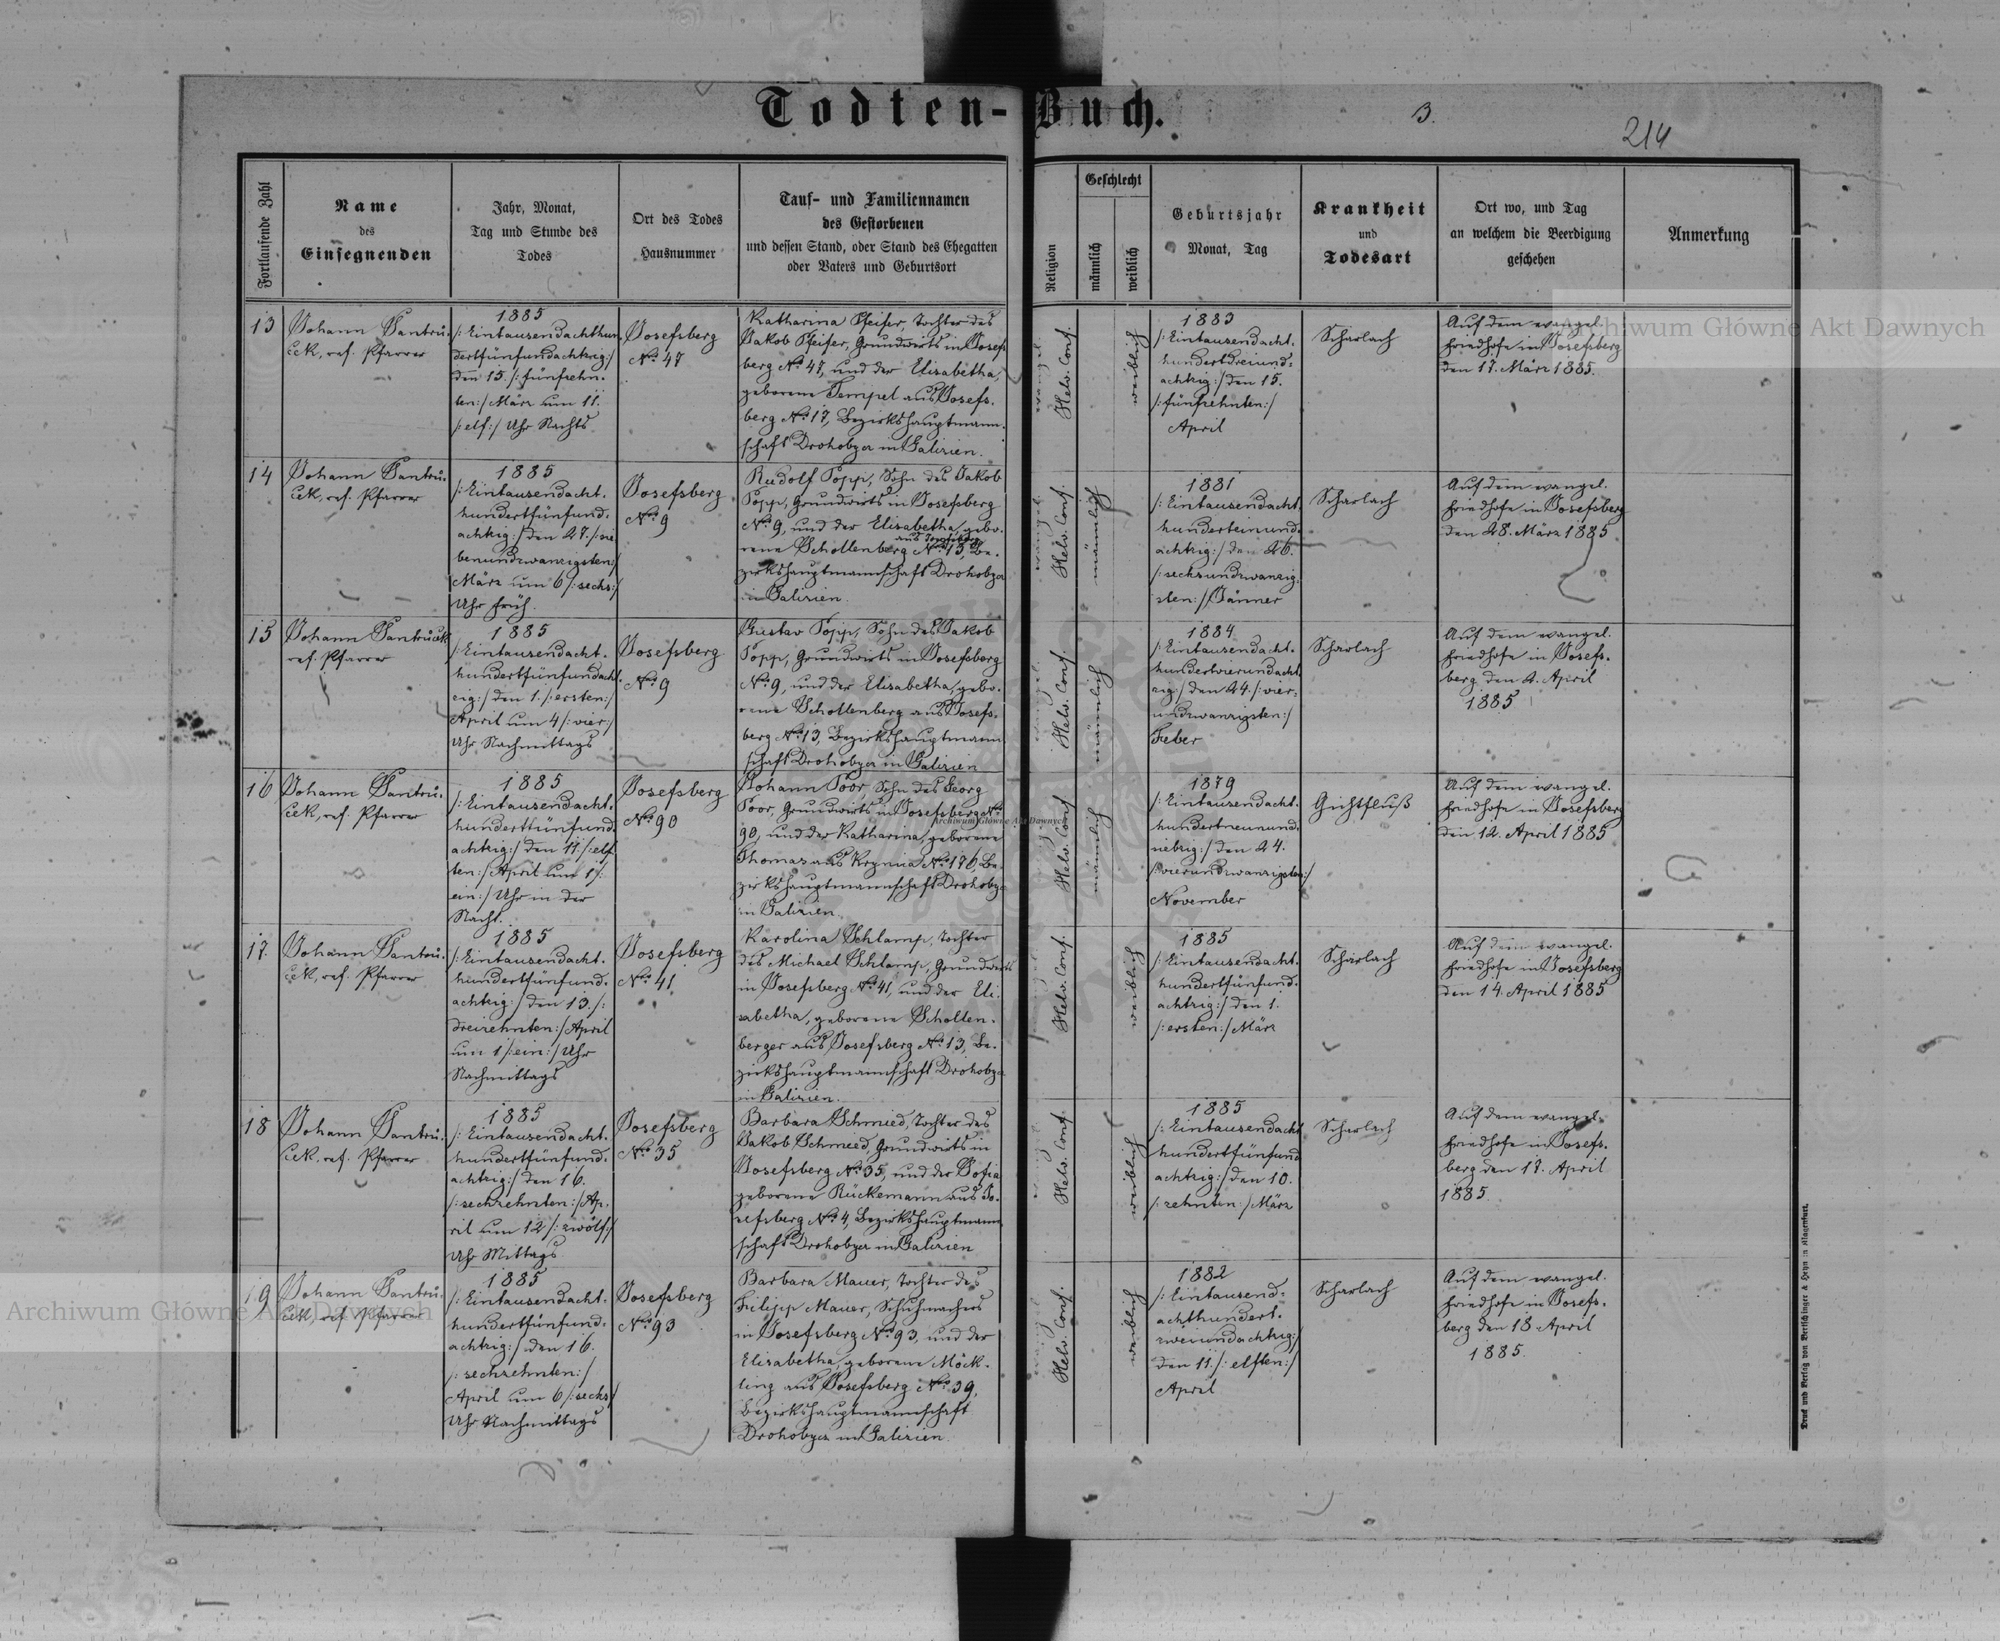 Todten-Buch.
3.
214
Fortlaufende Zahl
Name
des
Einsegnenden
Jahr, Monat,
Tag und Stunde des
Todes
Ort des Todes
Hausnummer
Tauf- und Familiennamen
des Gestorbenen
und dessen Stand, oder Stand des Ehegatten
oder Vaters und Geburtsort
Religion
Geschlecht
männlich
weiblich
Geburtsjahr
Monat, Tag
Krankheit
und
Todesart
Ort wo, und Tag
an welchem die Beerdigung
geschehen
Anmerkung
13
Johann Jantru-
ček, ref. Pfarrer
1885
/: Eintausendachthun
dertfünfundachtzig :/
den 15. /: fünfzehn-
ten :/ März um 11.
/: elf :/ Uhr Nachts
Josefsberg
No. 47
Katharina Pfeifer, Tochter des
Jakob Pfeifer, Grundwirts in Josefs
berg No. 47, und der Elisabetha,
geborene Tempel aus Josefs-
berg No. 17, Bezirkshauptmann-
schaft Drohobycz in Galizien.
evangel.
Helv. Conf.
weiblich
1883
/: Eintausendacht-
hundertdreiund-
achtzig :/ den 15.
/: fünfzehnten :/
April
Scharlach
Auf dem evangel.
Friedhofe in Josefsberg
den 17. März 1885.
14
Johann Jantru-
ček, ref. Pfarrer
1885
/: Eintausendacht-
hundertfünfund-
achtzig :/ den 27. /: sie
benundzwanzigsten :/
März um 6 /: sechs :/
Uhr früh.
Josefsberg
No. 9
Rudolf Popp, Sohn des Jakob
Popp, Grundwirts in Josefsberg
No. 9, und der Elisabetha, gebo-
aus Josefsberg
rene Schollenberg No. 13, Be-
zirkshauptmannschaft Drohobycz
in Galizien.
evangel.
Helv. Conf.
männlich
1881
/: Eintausendacht
hunderteinund-
achtzig :/ den 26.
/: sechsundzwanzig-
sten :/ Jänner
Scharlach
Auf dem evangel.
Friedhofe in Josefsberg
den 28. März 1885.
15
Johann Jantruček
ref. Pfarrer
1885
/: Eintausendacht-
hundertfünfundacht
zig :/ den 1. /: ersten :/
April um 4 /: vier :/
Uhr Nachmittags
Josefsberg
No. 9
Gustav Popp, Sohn des Jakob
Popp, Grundwirts in Josefsberg
No. 9, und der Elisabetha, gebo-
rene Schollenberg aus Josefs-
berg No. 13, Bezirkshauptmann
schaft Drohobycz in Galizien
evangel.
Helv. Conf.
männlich
1884
/: Eintausendacht-
hundertvierundacht
zig :/ den 24. /: vier-
undzwanzigsten :/
Feber
Scharlach
Auf dem evangel.
Friedhofe in Josefs-
berg den 2. April
1885
16
Johann Jantru-
ček, ref. Pfarrer
1885
/: Eintausendacht-
hundertfünfund-
achtzig :/ den 11. /: elf
ten :/ April um 1 /:
ein :/ Uhr in der
Nacht.
Josefsberg
No. 90
Johann Poor, Sohn des Georg
Poor, Grundwirts in Josefsberg No.
90, und der Katharina, geborene
Thomas aus Krynica No. 176, Be-
zirkshauptmannschaft Drohobycz
in Galizien.
Helv. Conf.
männlich
1879
/: Eintausendacht-
hundertneunund-
siebzig :/ den 24.
/: vierundzwanzigsten :/
November
Gichtfluß
Auf dem evangel.
Friedhofe in Josefsberg
den 12. April 1885
17.
Johann Jantru-
ček, ref. Pfarrer
1885
/: Eintausendacht-
hundertfünfund-
achtzig :/ den 13. /:
dreizehnten :/ April
um 1 /: ein :/ Uhr
Nachmittags
Josefsberg
No. 41
Karolina Schlamp, Tochter
des Michael Schlamp, Grundwirts
in Josefsberg No. 41, und der Eli-
sabetha, geborene Schollen-
berger aus Josefsberg No. 13, Be-
zirkshauptmannschaft Drohobycz
in Galizien.
Helv. Conf.
weiblich
1885
/: Eintausendacht-
hundertfünfund-
achtzig :/ den 1.
/: ersten :/ März
Scharlach
Auf dem evangel.
Friedhofe in Josefsberg
den 14. April 1885
18
Johann Jantru-
ček, ref. Pfarrer
1885
/: Eintausendacht-
hundertfünfund-
achtzig :/ den 16.
/: sechzehnten :/ Ap-
ril um 12 /: zwölf :/
Uhr Mittags
Josefsberg
No. 35
Barbara Schmied, Tochter des
Jakob Schmied, Grundwirts in
Josefsberg No. 35, und der Sofia
geborene Rückemann aus Jo-
sefsberg No. 4, Bezirkshauptmann
schaft Drohobycz in Galizien
Helv. Conf.
weiblich
1885
/: Eintausendacht
hundertfünfund
achtzig :/ den 10.
/: zehnten :/ März
Scharlach
Auf dem evangel.
Friedhofe in Josefs-
berg den 17. April
1885.
19
Johann Jantru-
ček, ref. Pfarrer
1885
/: Eintausendacht-
hundertfünfund-
achtzig :/ den 16.
/: sechzehnten :/
April um 6 /: sechs :/
Uhr Nachmittags
Josefsberg
No. 93
Barbara Mauer, Tochter des
Filipp Mauer, Schuhmachers
in Josefsberg No. 93, und der
Elisabetha, geborene Möck-
ling aus Josefsberg No. 39,
Bezirkshauptmannschaft
Drohobycz in Galizien.
Helv. Conf.
weiblich
1882
/: Eintausend-
achthundert-
zweiundachtzig :/
den 11. /: elften :/
April
Scharlach
Auf dem evangel.
Friedhofe in Josefs-
berg den 18. April
1885.
Druck und Verlag von Bertschinger & Heyn in Klagenfurt.
Archiwum Główne Akt Dawnych
Archiwum Główne Akt Dawnych
Archiwum Główne Akt Dawnych